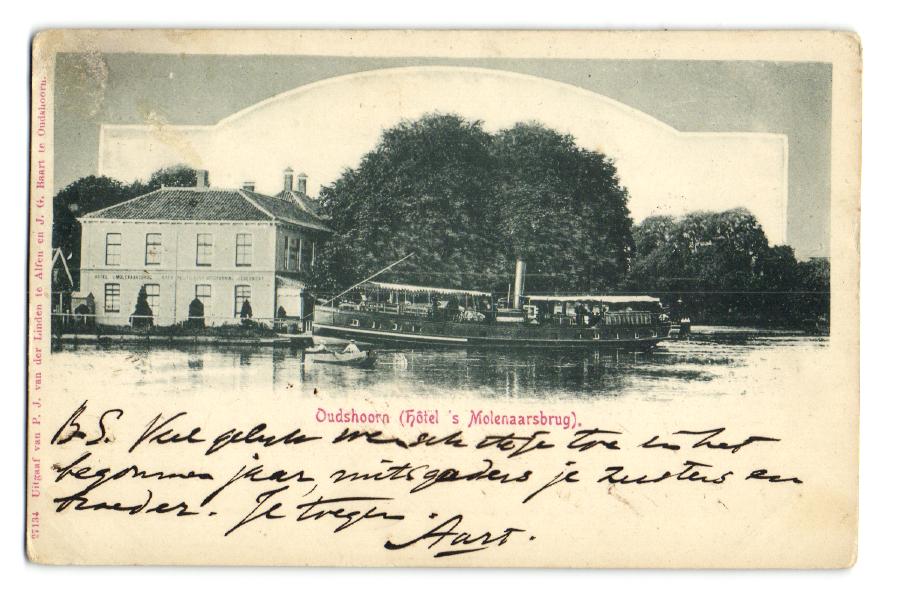 Oudshoorn (Hôtel 's Molenaarsbrug).
B.S. Veel geluk wensch ik je toe in het
begonnen jaar, mitsgaders je zusters en
broeder. Je toegen.
Aart.
27134 Uitgaaf van P. J. van der Linden te Alfen en J. G. Baart te Oudshoorn.
HOTEL 'S MOLENAARSBRUG